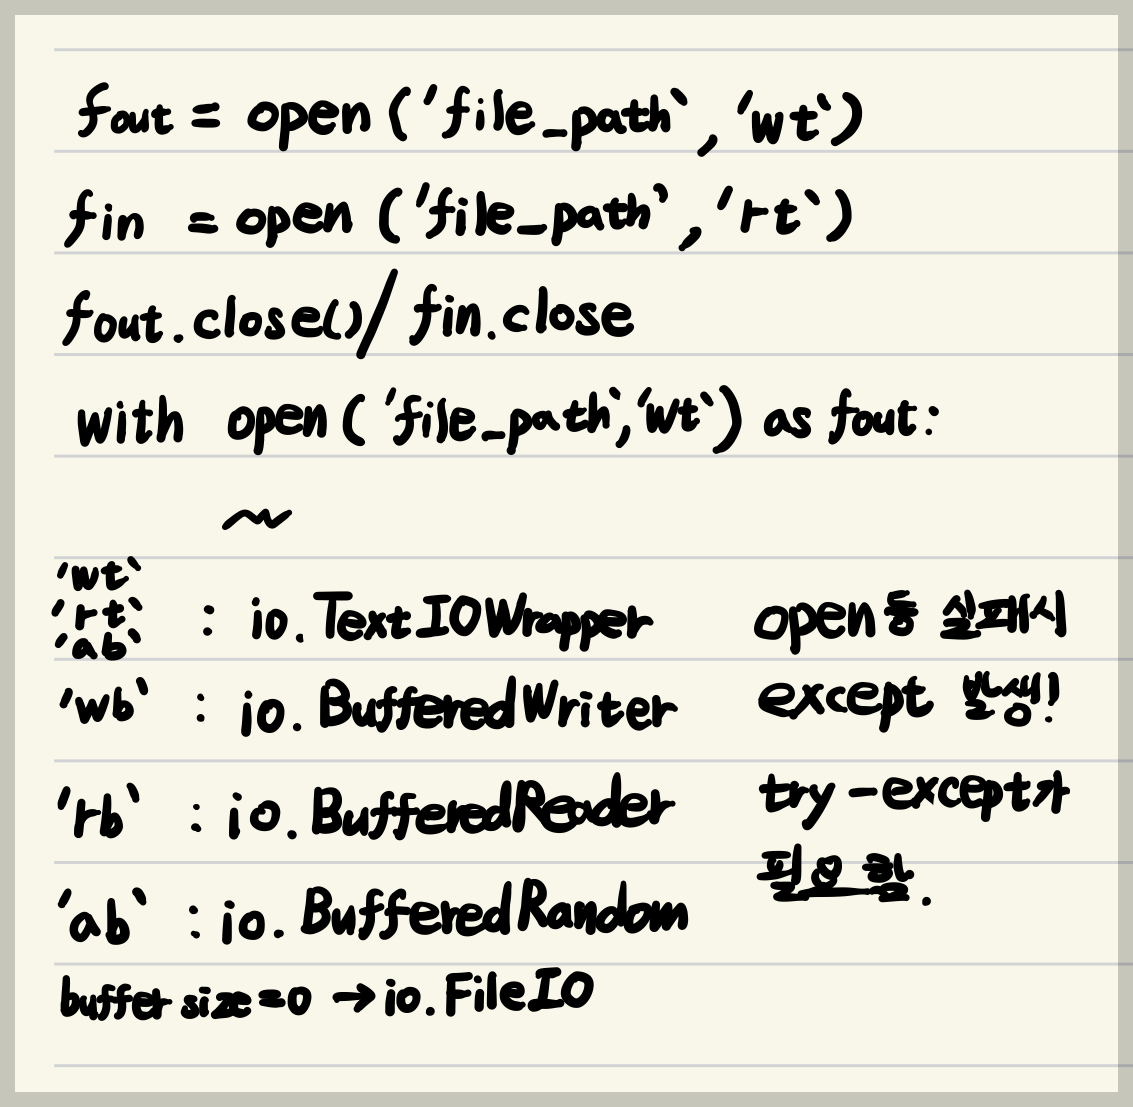 fout = open ('file_path', 'wt')
fin = open ('file_path', 'rt')
fout.close() / fin.close
with open ('file_path', 'wt') as fout:
~
'wt'
'rt'
'ab'
: io.TextIOWrapper
'wb' : io.BufferedWriter
'rb' : io.BufferedReader
'ab' : io.BufferedRandom
buffer size=0 → io.FileIO
open 등 실패시
except 발생!
try-except가
필요함.